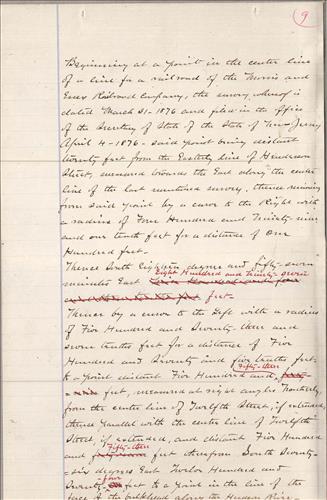 9
Beginning at a point in the center line
of a line for a railroad of the Morris and
Essex Railroad Company, the survey whereof is
dated March 31-1876 and filed in the Office
of the Secretary of State of the State of New Jersey
April 4-1876 - said point being distant
twenty feet from the Easterly line of Henderson
Street, measured towards the East along the center
line of the last mentioned survey, thence running
from said point by a curve to the Right with
a radius of Four Hundred and Ninety-nine
and one tenth feet for a distance of One
Hundred feet-
Thence South Eighteen degrees and fifty-seven
Eight Hundred and Ninety-seven
minutes East feet.
Thence by a curve to the Left with a radius
of Five Hundred and Seventy-three and
seven tenths feet for a distance of Five
Hundred and Seventy and five tenths feet.
Fifty-three
to a point distant Five Hundred and
feet, measured at right angles Northerly,
from the center line of Twelfth Street, if extended,
thence Parallel with the center line of Twelfth
Street, if extended, and distant Five Hundred
Fifty-three
and feet therefrom South Seventy-
-six degrees East Twelve Hundred and
four
Seventy- feet to a point in the line of the
face of the bulkhead along the Hudson River-